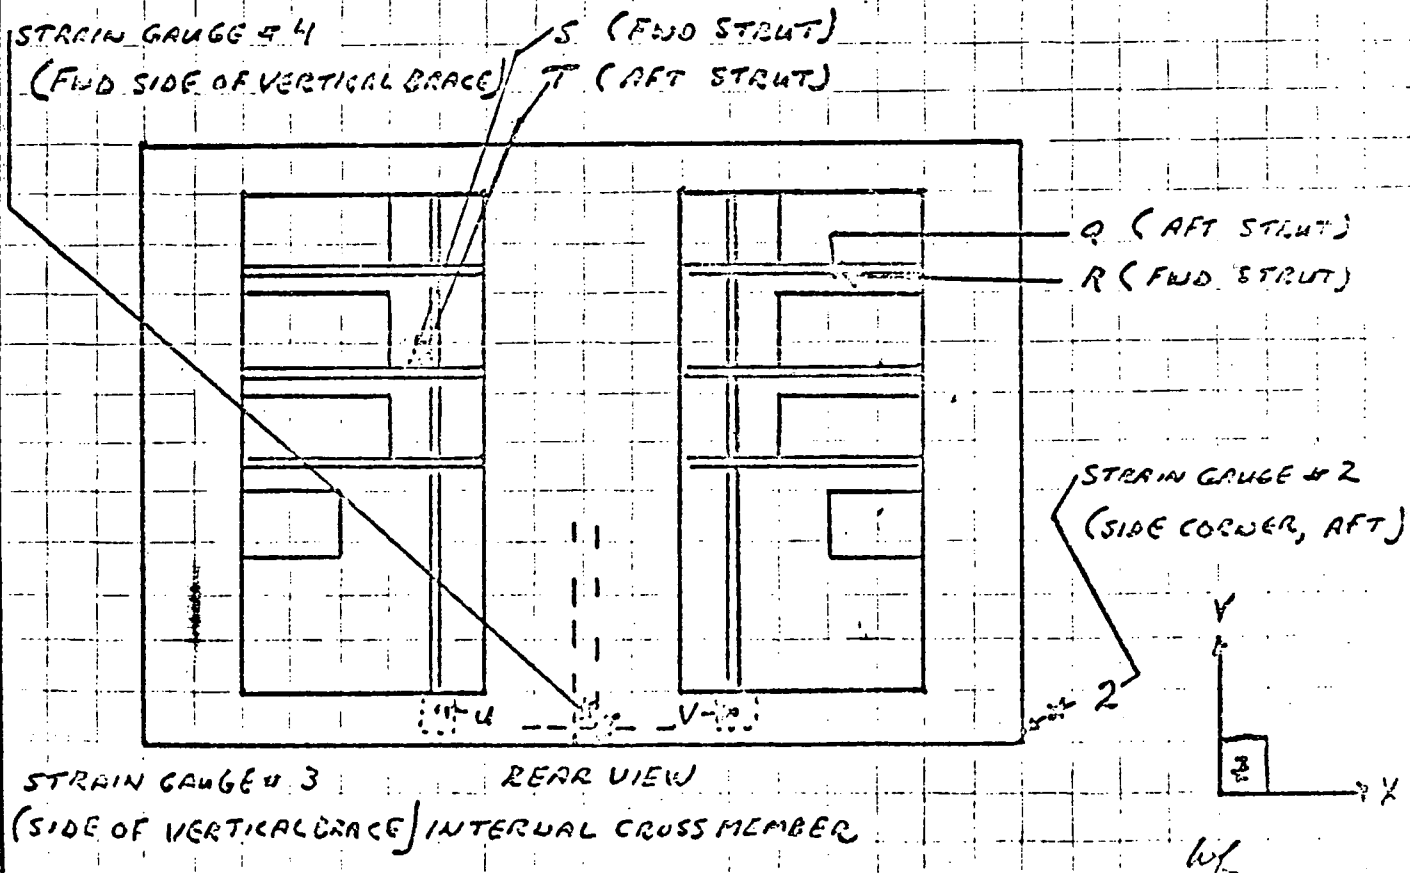 STRAIN GAUGE # 4
(FWD SIDE OF VERTICAL BRACE)
S (FWD STRUT)
T (AFT STRUT)
Q (AFT STRUT)
R (FWD STRUT)
STRAIN GAUGE # 2
(SIDE CORNER, AFT)
2
U
V
Y
X
STRAIN GAUGE # 3
(SIDE OF VERTICAL BRACE) INTERNAL CROSS MEMBER
REAR VIEW